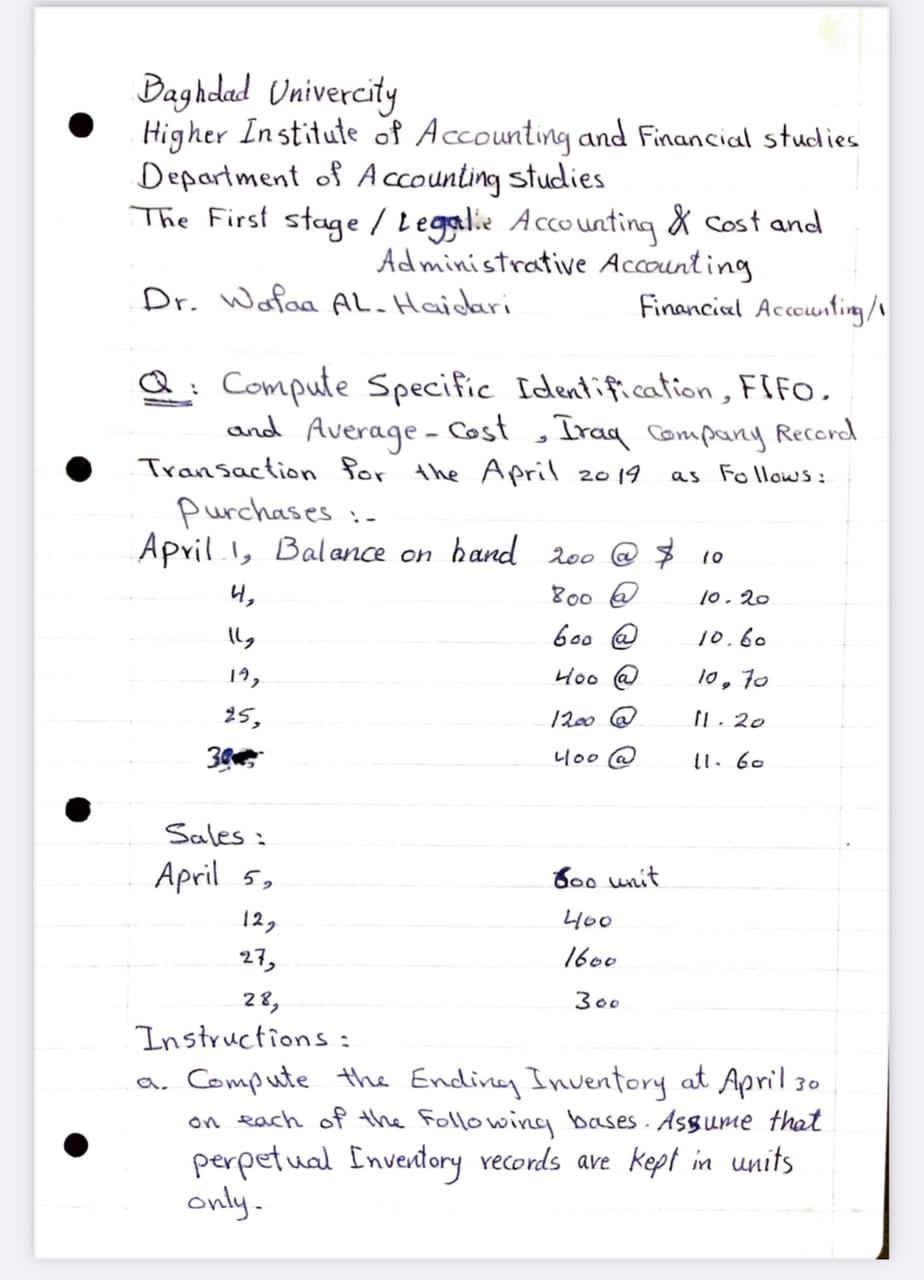 Baghdad Univercity
Higher Institute of Accounting and Financial studies
Department of Accounting studies
The First stage / Legalie Accounting & Cost and
Administrative Accounting
Dr. Wafaa AL-Haidari Financial Accounting/1
Q: Compute Specific Identification, FIFO.
and Average-Cost, Iraq Company Record
Transaction for the April 2019 as Follows:
Purchases :-
April 1, Balance on hand 200 @ $ 10
4, 800 @ 10.20
11, 600 @ 10.60
19, 400 @ 10,70
25, 1200 @ 11.20
30, 400 @ 11.60
Sales:
April 5, 600 unit
12, 400
27, 1600
28, 300
Instructions:
a. Compute the Ending Inventory at April 30
on each of the Following bases. Assume that
perpetual Inventory records are kept in units
only.